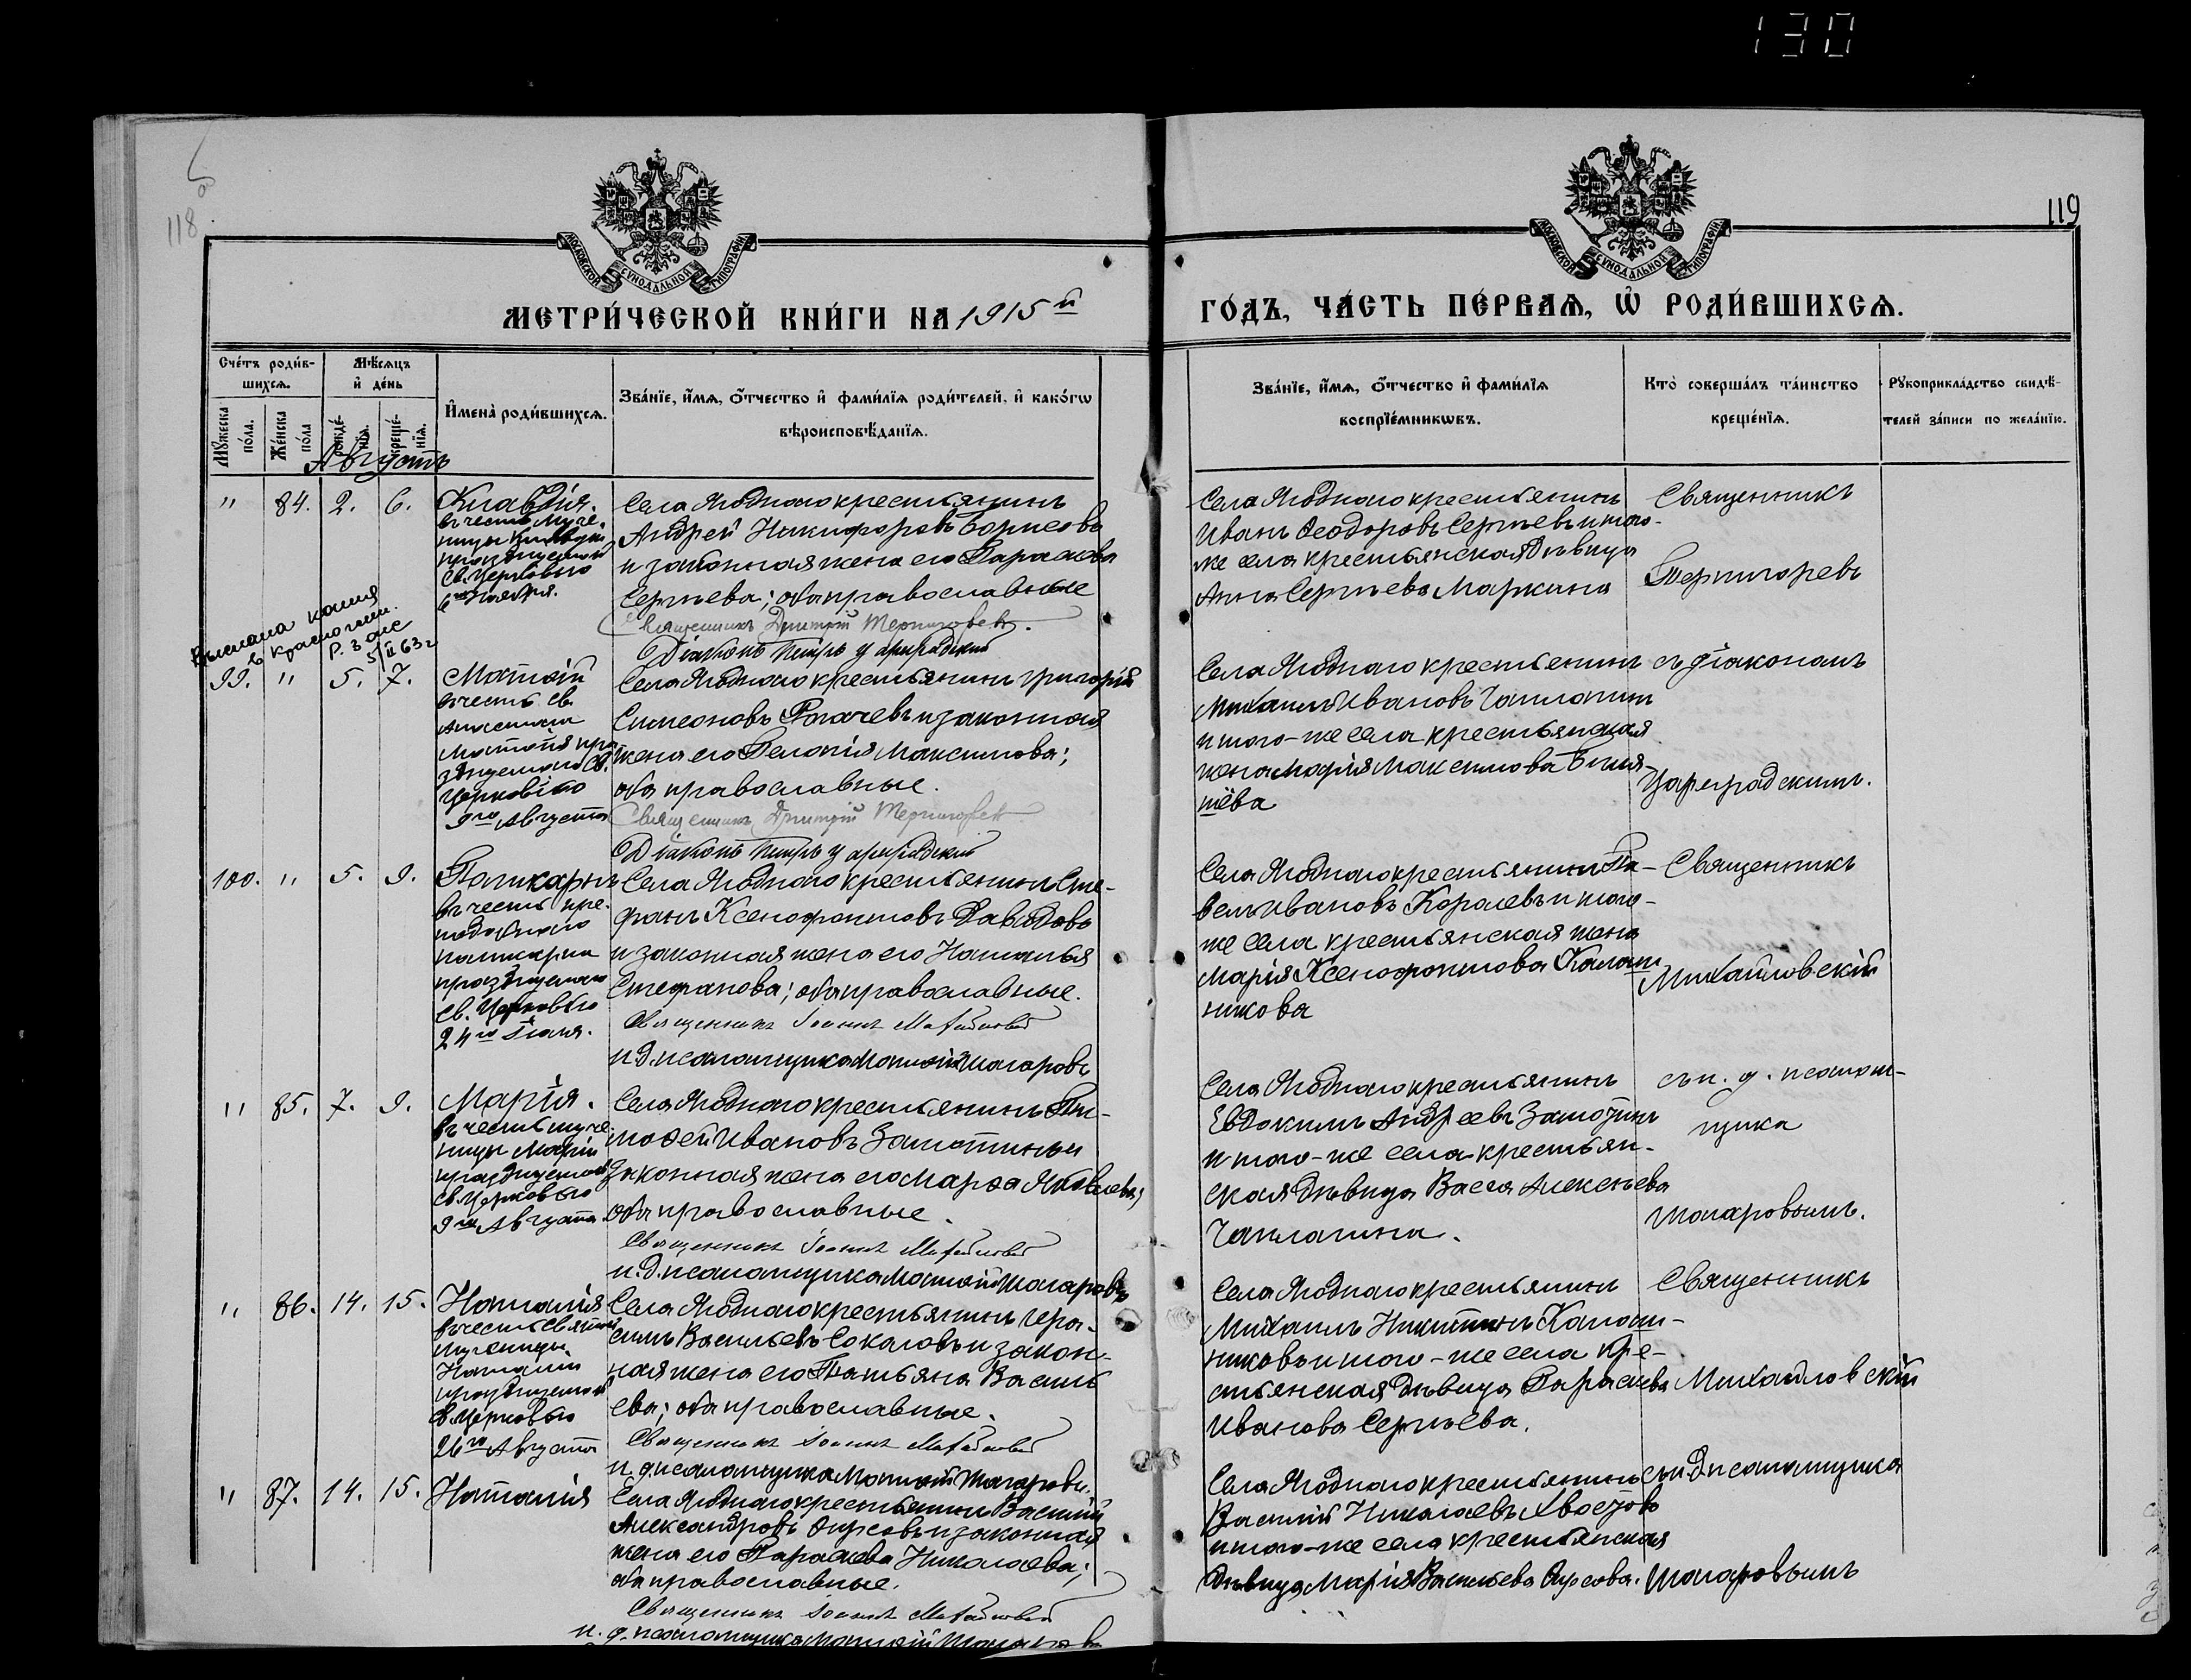 130
118
119
МОСКОВСКОЙ СУНОДАЛЬНОЙ ТИПОГРАФІИ
МОСКОВСКОЙ СУНОДАЛЬНОЙ ТИПОГРАФІИ
МЕТРИ́ЧЕСКОЙ КНИ́ГИ НА 1915й
ГО́ДЪ, ЧА́СТЬ ПЕ́РВАѦ, Ѡ РОДИ́ВШИХСѦ.
Сче́тъ роди́в-
шихсѧ.
Мꙋжеска по́ла.
Же́нска по́ла
Мѣ́сѧцъ
и де́нь
рожде́-нїѧ.
креще́-нїѧ.
Имена̀ роди́вшихсѧ.
Зва́нїе, и́мѧ, о́тчество и фами́лїѧ роди́телей, и како́гѡ
вѣроисповѣ́данїѧ.
Зва́нїе, и́мѧ, о́тчество и фами́лїѧ
воспрїе́мникѡвъ.
Кто̀ соверша́лъ та́инство
креще́нїѧ.
Рꙋкоприкла́дство свидѣ́-
телей за́писи по жела́нїю.
Августъ
" 84. 2. 6.
Клавдія.
въ честь Муче-
ницы Клавдіи
празднуемой
Св. Церковью
6го Ноября.
Села Ягоднаго крестьянинъ
Андрей Никифоровъ Борисовъ
и законная жена его Параскева
Сергѣева; оба православные
Священникъ Дмитрій Терпигоревъ.
Діаконъ Петръ Цареградский
Села Ягоднаго крестьянинъ
Иванъ Ѳеодоровъ Сергѣевъ и того-
же села крестьянская дѣвица
Анна Сергѣева Маркина
Священникъ
Терпигоревъ
Выслана копия
в Красноглин.
Р. ЗАГС
5/II 63 г
99. " 5. 7.
Матѳій
въ честь Св.
Апостола
Матѳія пра-
зднуемаго Св.
Церковію
9го Августа
Села Ягоднаго крестьянинъ Григорій
Симеоновъ Рогачевъ и законная
жена его Пелагія Максимова;
оба православные.
Священникъ Дмитрій Терпигоревъ
Діаконъ Петръ Цареградский
Села Ягоднаго крестьянинъ
Михаилъ Ивановъ Чаплагинъ
и того-же села крестьянская
жена Марія Максимова
съ діакономъ
Цареградскимъ.
100. " 5. 9.
Поликарпъ
въ честь пре-
подобнаго
Поликарпа
празднуемаго
Св. Церковью
24го Іюля.
Села Ягоднаго крестьянинъ Сте-
фанъ Ксенофонтовъ Давыдовъ
и законная жена его Наталья
Стефанова; оба православные.
Священникъ Іоаннъ Михайловскій
и. д. псаломщика Матѳій Шагаровъ
Села Ягоднаго крестьянинъ Па-
велъ Ивановъ Королевъ и того-
же села крестьянская жена
Марія Ксенофонтова Калаш-
никова
Священникъ
Михайловскій
" 85. 7. 9.
Марія.
въ честь муче-
ницы Маріи
празднуемой
Св. Церковью
9го Августа.
Села Ягоднаго крестьянинъ Ти-
моѳей Ивановъ Замотинъ и
законная жена его Марѳа Яковлева;
оба православные.
Священникъ Іоаннъ Михайловскій
и. д. псаломщика Матѳій Шагаровъ
Села Ягоднаго крестьянинъ
Евдокимъ Андреевъ Замотинъ
и того-же села крестьян-
ская дѣвица Васса Алексѣева
Чаплагина.
съ и. д. псалом-
щика
Шагаровымъ.
" 86. 14. 15.
Наталія
въ честь Святой
мученицы
Наталіи
празднуемой
Св. Церковью
26го Августа
Села Ягоднаго крестьянинъ Гера-
симъ Васильевъ Соколовъ и закон-
ная жена его Татьяна Василь-
ева; оба православные.
Священникъ Іоаннъ Михайловскій
и. д. псаломщика Матѳій Шагаровъ.
Села Ягоднаго крестьянинъ
Михаилъ Никитинъ Калаш-
никовъ и того-же села кре-
стьянская дѣвица Параскева
Иванова Сергѣева.
Священникъ
Михайловскій
" 87. 14. 15.
Наталія
Села Ягоднаго крестьянинъ Василій
Александровъ Фирсовъ и законная
жена его Параскева Николаева;
оба православные.
Священникъ Іоаннъ Михайловскій
и. д. псаломщика Матѳій Шагаровъ
Села Ягоднаго крестьянинъ
Василій Николаевъ Хвостовъ
и того-же села крестьянская
дѣвица Марія Васильева Фирсова.
съ и. д. псаломщика
Шагаровымъ